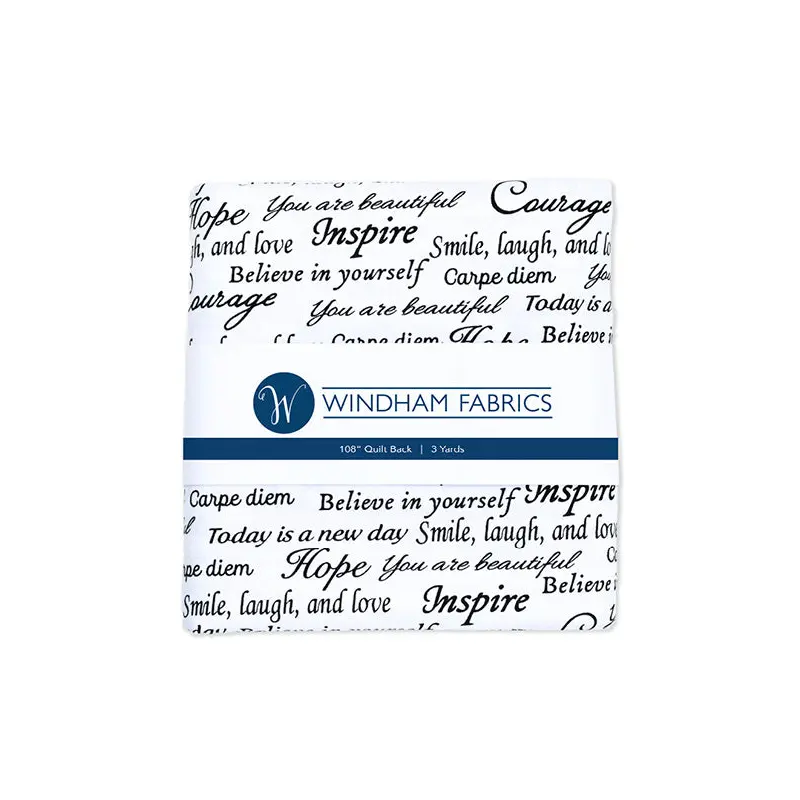 Hope You are beautiful Courage
h, and love Inspire Smile, laugh, and lo
Believe in yourself Carpe diem You
ourage You are beautiful Today is a
Carpe diem Hope Believe i
W WINDHAM FABRICS
108" Quilt Back | 3 Yards
Carpe diem Believe in yourself Inspire
Today is a new day Smile, laugh, and love
pe diem Hope You are beautiful
Believe i
Smile, laugh, and love Inspire
day Believe in yourself